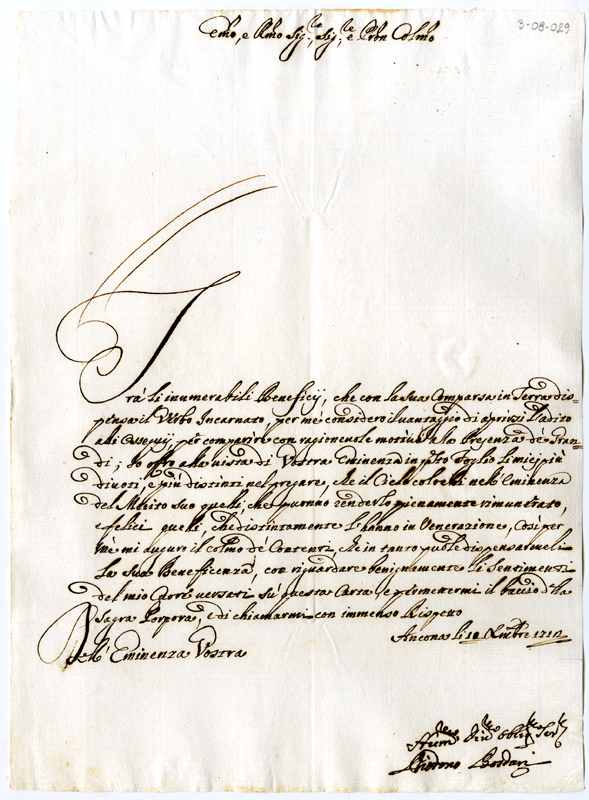 3-08-029
Emo, e Rmo Sig.re, Sig.re e Pron Colmo
Trà li inumerabili Beneficij, che con la sua Comparsa in Terra dis=
pensa il Verbo Incarnato, per me considero il vantaggio di aprirsi l'adito
alli Ossequij, per comparire con ragioneuole motiuo alla Presenza de Gran=
di; Io offro alla uista di Vostra Eminenza in pnto Foglio li miei più
diuoti, e più distinti nel pregare, che il Cielo colochi nell'Eminenza
del Merito suo quelli, che puonno renderlo pienamente rimunerato,
e felici quelli, che distintamente l'hanno in Veneratione, Così per
mè mi auguro il colmo de Contenti, che in tanto puole dispensarmeli
la sua Beneficenza, con riguardare benignamente li Sentimenti
del mio Cuore uersati sù questa Carta, e promettermi il bacio della
Sagra Porpora, e di chiamarmi con immenso Rispetto
Ancona li 18 Xmbre 1712
Dell' Eminenza Vostra
Humo Deuo Obligo Ser.e
Bondari